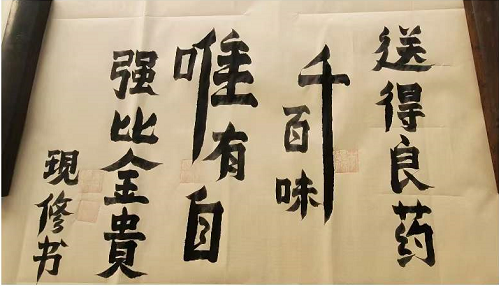 送得良药
千百味
唯有自
强比金貴
現修书